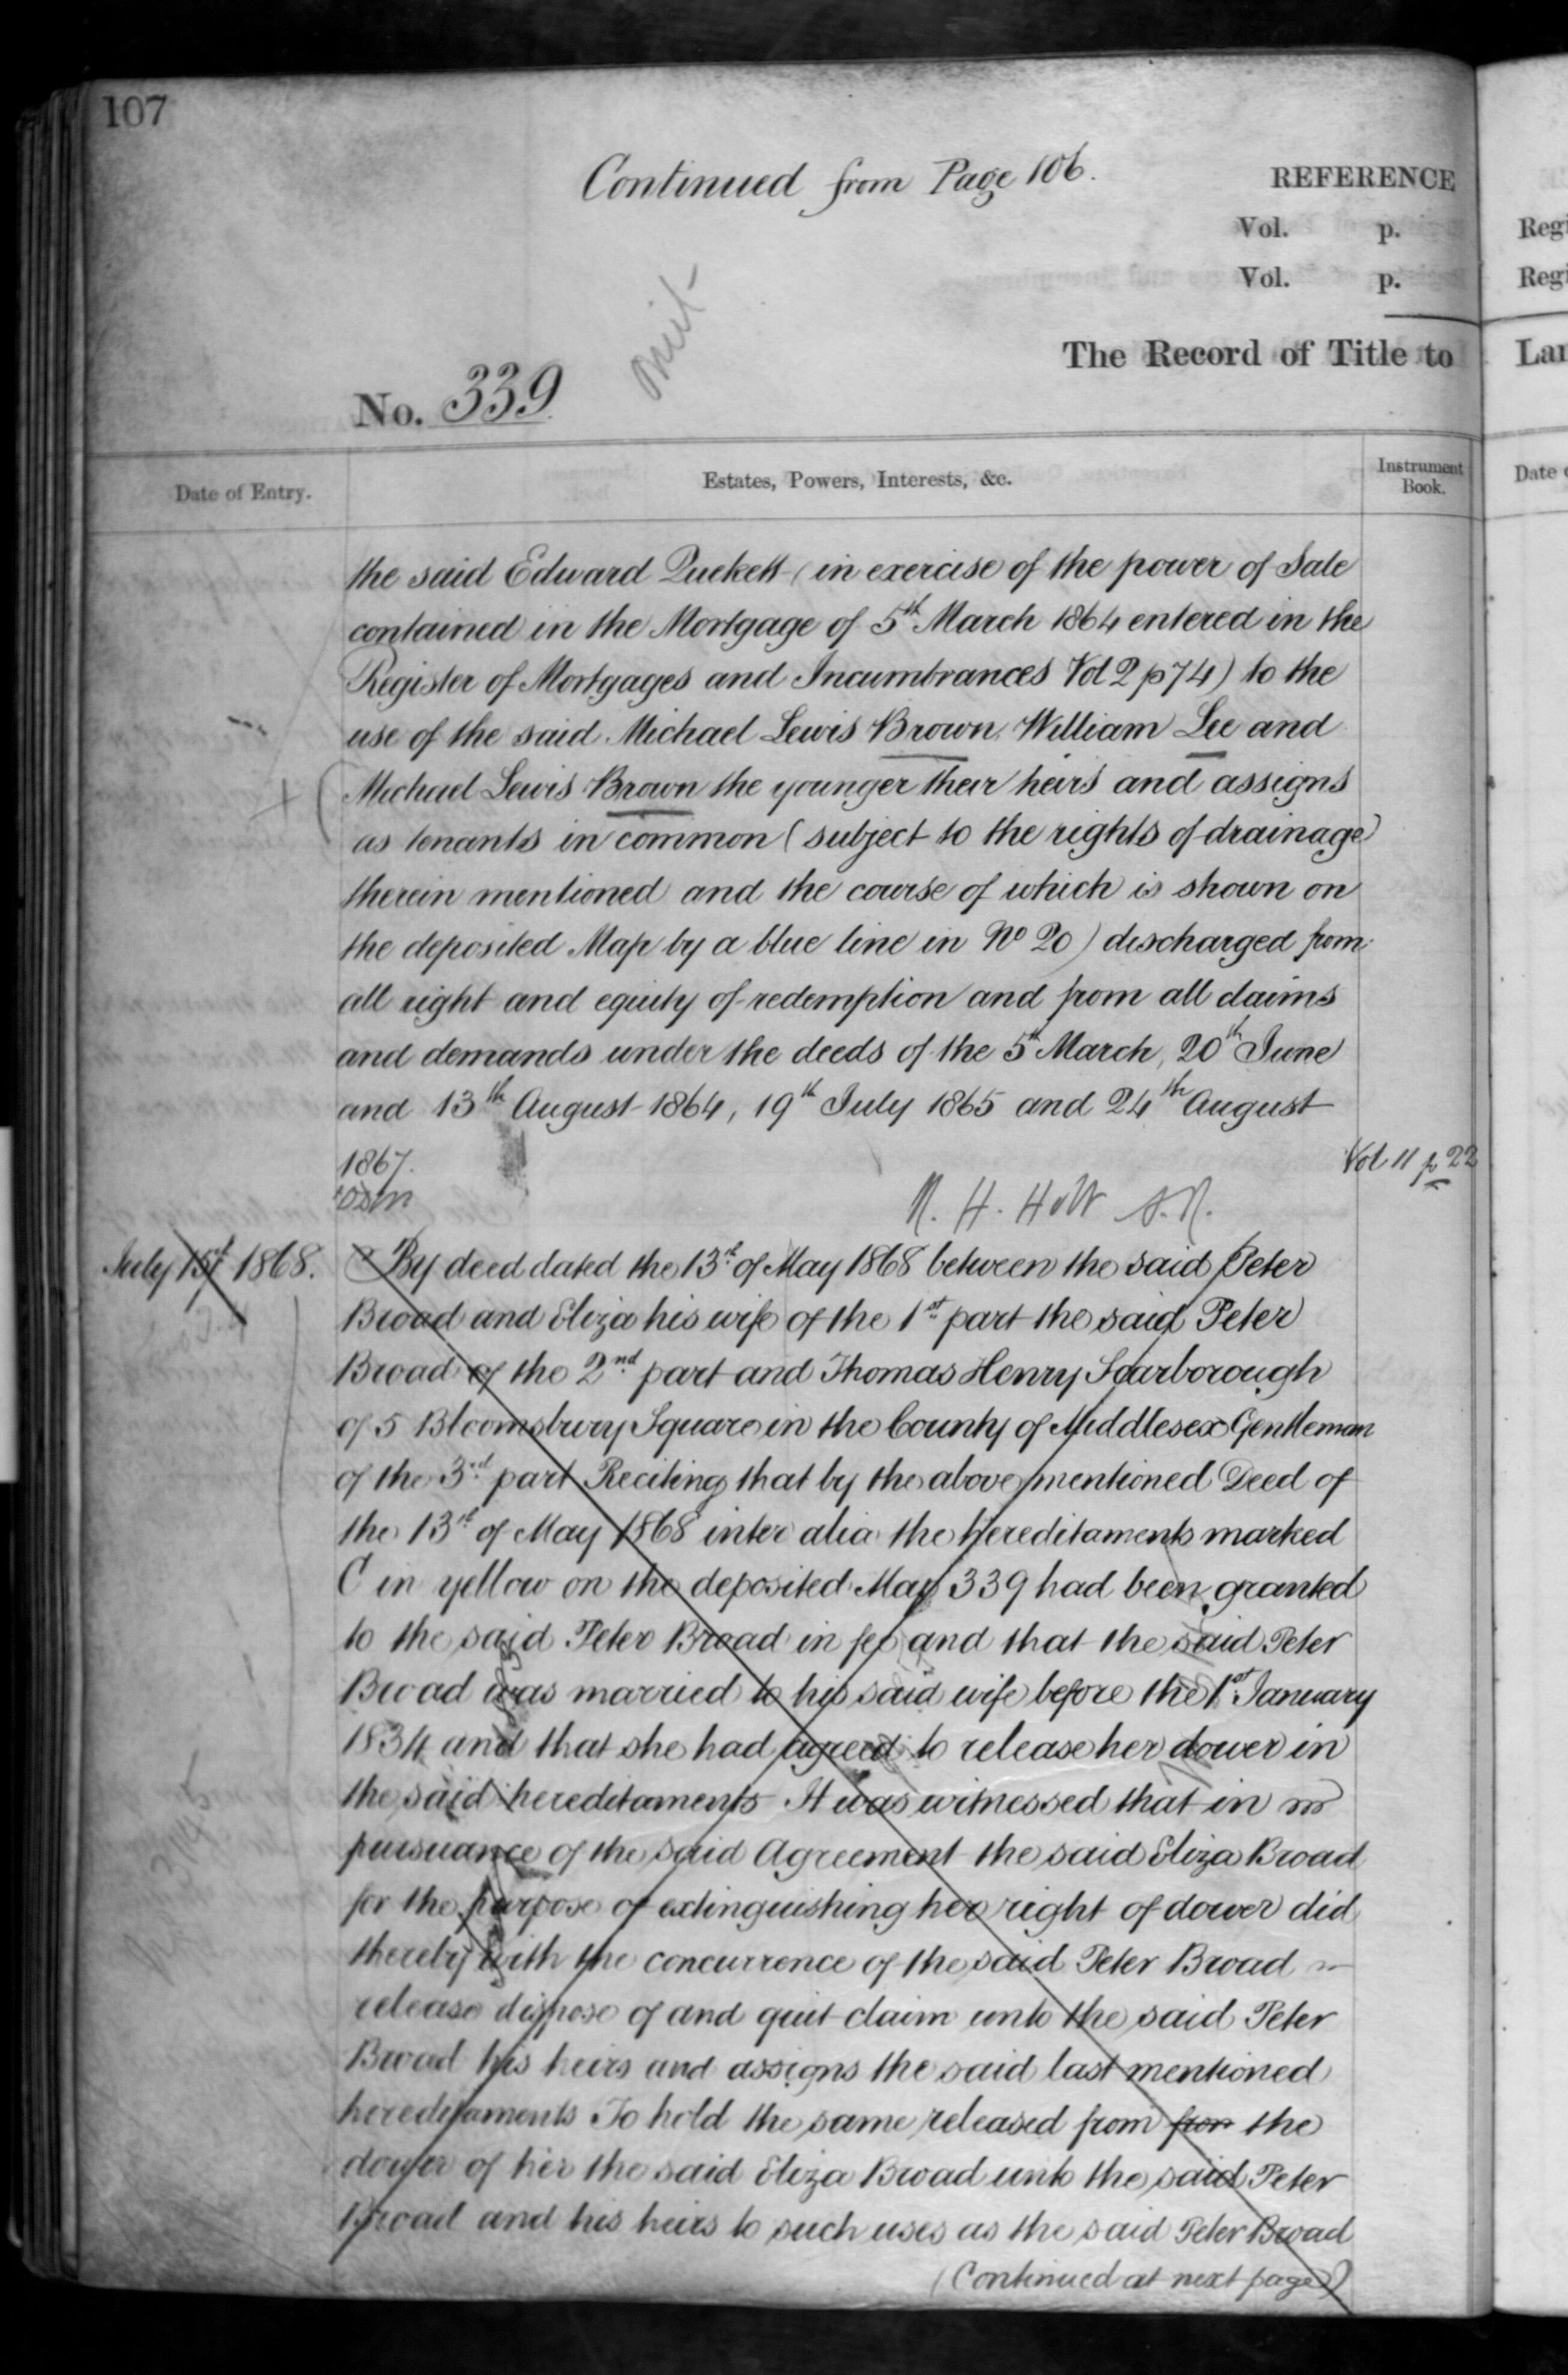 107
Continued from Page 106.
REFERENCE
Vol. p.
Vol. p.
Regi
Regi
omit
The Record of Title to
Lan
No. 339
Date of Entry.
Estates, Powers, Interests, &c.
Instrument Book.
Date o
the said Edward Quekett (in exercise of the power of Sale
contained in the Mortgage of 5th March 1864 entered in the
Register of Mortgages and Incumbrances Vol 2 p 74) to the
use of the said Michael Lewis Brown William Lee and
Michael Lewis Brown the younger their heirs and assigns
as tenants in common (subject to the rights of drainage
therein mentioned and the course of which is shown on
the deposited Map by a blue line in No 20) discharged from
all right and equity of redemption and from all claims
and demands under the deeds of the 5th March, 20th June
and 13th August 1864, 19th July 1865 and 24th August
1867.
Vol 11 p 22
R. H. Holt A.R.
July 1st 1868.
By deed dated the 13th of May 1868 between the said Peter
Broad and Eliza his wife of the 1st part the said Peter
Broad of the 2nd part and Thomas Henry Scarborough
of 5 Bloomsbury Square in the County of Middlesex Gentleman
of the 3rd part Reciting that by the above mentioned Deed of
the 13th of May 1868 inter alia the hereditaments marked
C in yellow on the deposited Map 339 had been granted
to the said Peter Broad in fee and that the said Peter
Broad was married to his said wife before the 1st January
1834 and that she had agreed to release her dower in
the said hereditaments It was witnessed that in
pursuance of the said Agreement the said Eliza Broad
for the purpose of extinguishing her right of dower did
thereby with the concurrence of the said Peter Broad
release dispose of and quit claim unto the said Peter
Broad his heirs and assigns the said last mentioned
hereditaments To hold the same released from from the
dower of her the said Eliza Broad unto the said Peter
Broad and his heirs to such uses as the said Peter Broad
(Continued at next page)